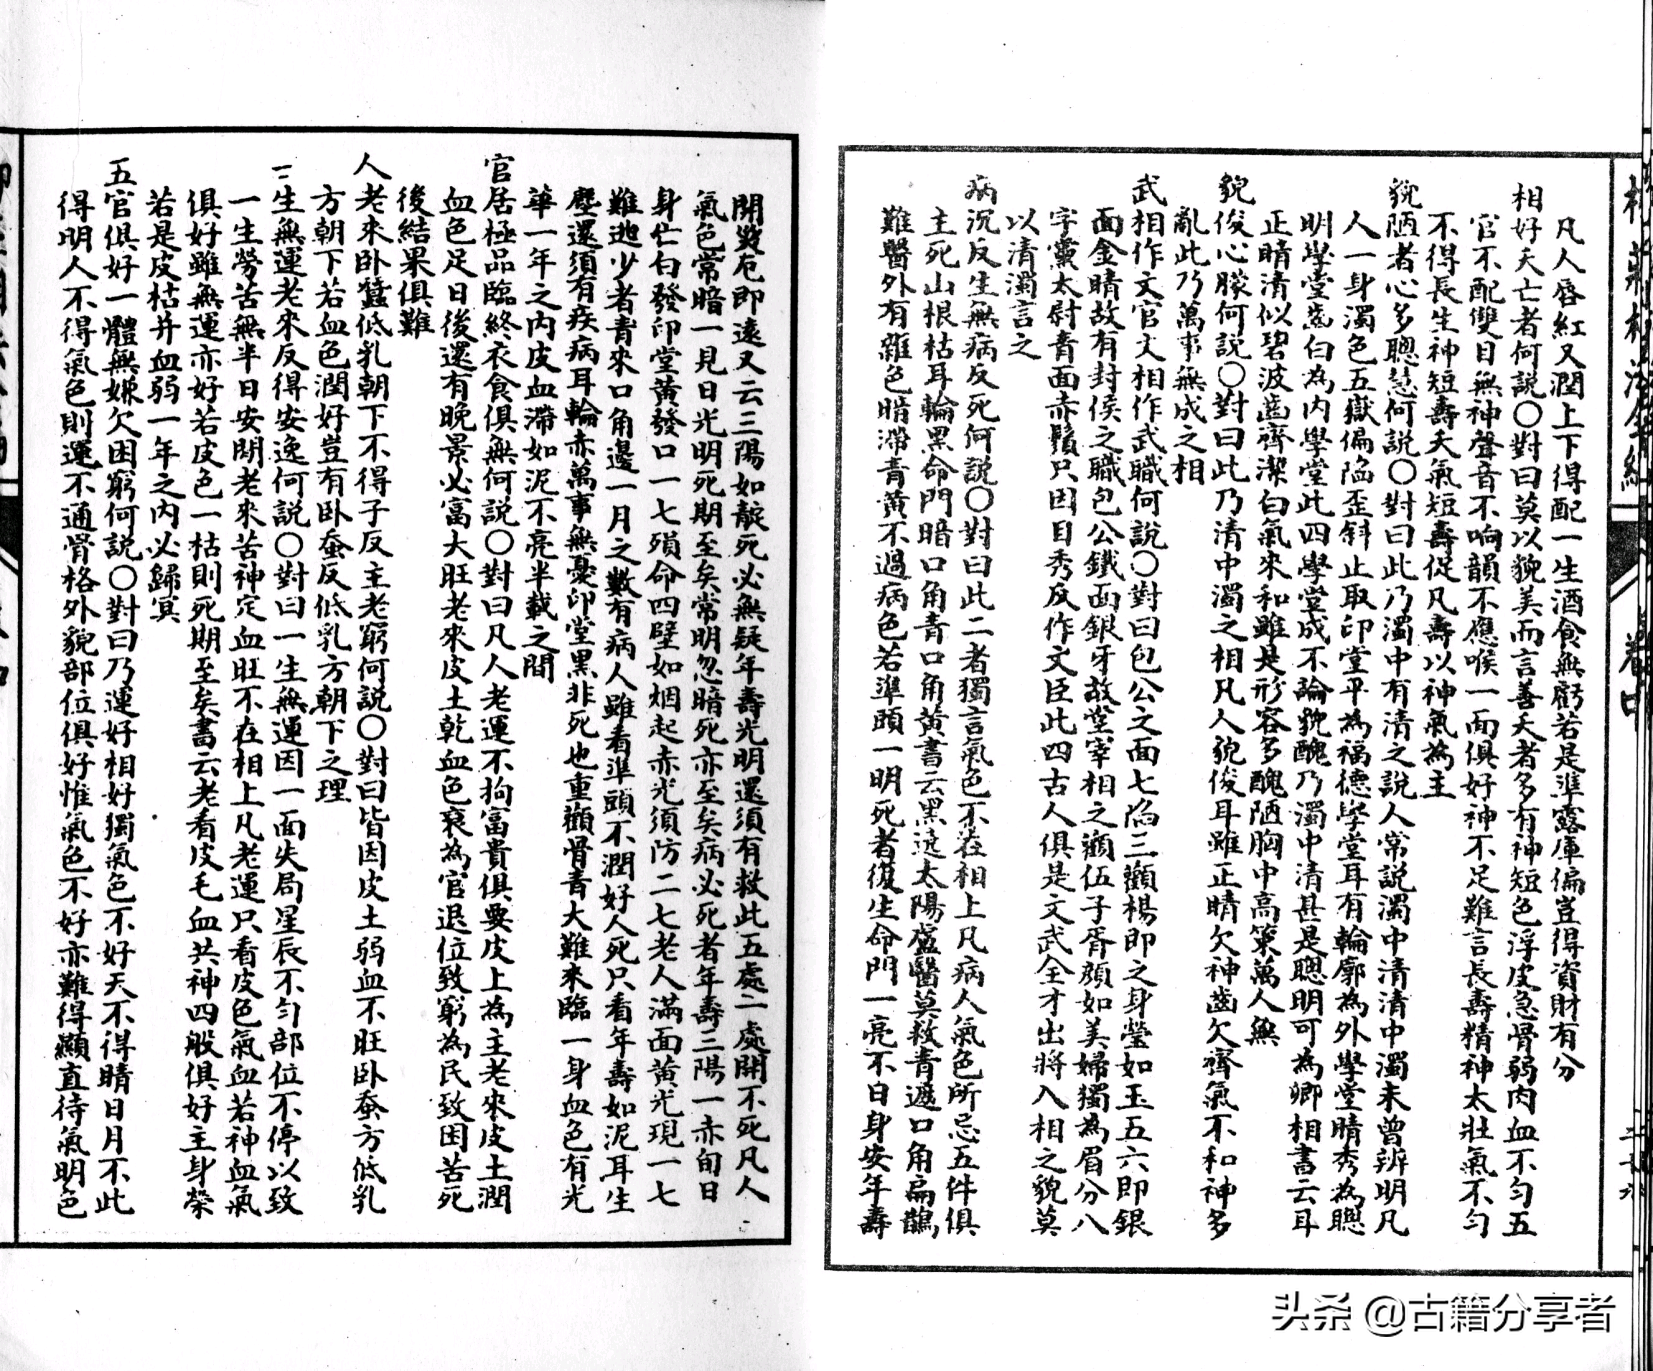 凡人唇紅又潤上下得配一生酒食無虧若是準露庫偏豈得資財有分
相好夭亡者何説〇對曰莫以貌美而言善夭者多有神短色浮皮急骨弱肉血不匀五
官不配雙目無神聲音不响韻不應喉一面俱好神不足難言長壽精神太壯氣不匀
不得長生神短壽夭氣短壽促凡壽以神氣為主
貌陋者心多聰慧何説〇對曰此乃濁中有清之説人常説濁中清清中濁未曾辨明凡
人一身濁色五嶽偏陷歪斜止取印堂平為福德學堂耳有輪廓為外學堂睛秀為聰
明學堂齒白為内學堂此四學堂成不論貌醜乃濁中清甚是聰明可為卿相書云耳
正睛清似碧波齒齊潔白氣來和雖是形容多醜陋胸中高策萬人無
貌俊心朦何説〇對曰此乃清中濁之相凡人貌俊耳雖正睛欠神齒欠齊氣不和神多
亂此乃萬事無成之相
武相作文官文相作武職何説〇對曰包公之面七陷三顴楊即之身瑩如玉五六即銀
面金睛故有封侯之職包公鐵面銀牙故堂宰相之顴伍子胥顔如美婦獨為眉分八
字黨太尉青面赤鬚只因目秀反作文臣此四古人俱是文武全才出將入相之貌莫
以清濁言之
病沉反生無病反死何説〇對曰此二者獨言氣色不在相上凡病人氣色所忌五件俱
主死山根枯耳輪黑命門暗口角青口角黄書云黑遶太陽盧醫莫救青遮口角扁鵲
難醫外有雜色暗滯青黄不過病色若準頭一明死者復生命門一亮不日身安年壽
開災厄即遠又云三陽如靛死必無疑年壽光明還須有救此五處二處開不死凡人
氣色常暗一見日光明死期至矣常明忽暗死亦至矣病必死者年壽三陽一赤旬日
身亡白發印堂黄發口一七殞命四壁如烟起赤光須防二七老人滿面黄光現一七
難逃少者青來口角邊一月之數有病人雖看準頭不潤好人死只看年壽如泥耳生
塵還須有疾病耳輪赤萬事無憂印堂黑非死也重顴骨青大難來臨一身血色有光
華一年之内皮血滯如泥不亮半載之間
官居極品臨終衣食俱無何説〇對曰凡人老運不拘富貴俱要皮上為主老來皮土潤
血色足日後還有晚景必富大旺老來皮土乾血色衰為官退位致窮為民致困苦死
後結果俱難
人老來卧蠶低乳朝下不得子反主老窮何説〇對曰皆因皮土弱血不旺卧蚕方低乳
方朝下若血色潤好豈有卧蚕反低乳方朝下之理
一生無運老來反得安逸何説〇對曰一生無運因一面失局星辰不匀部位不停以致
一生勞苦無半日安閑老來苦神定血旺不在相上凡老運只看皮色氣血若神血氣
俱好雖無運亦好若皮色一枯則死期至矣書云老看皮毛血共神四般俱好主身榮
若是皮枯并血弱一年之内必歸冥
五官俱好一體無嫌欠困窮何説〇對曰乃運好相好獨氣色不好天不得晴日月不此
得明人不得氣色則運不通骨格外貌部位俱好惟氣色不好亦難得顯直待氣明色
頭条 @古籍分享者